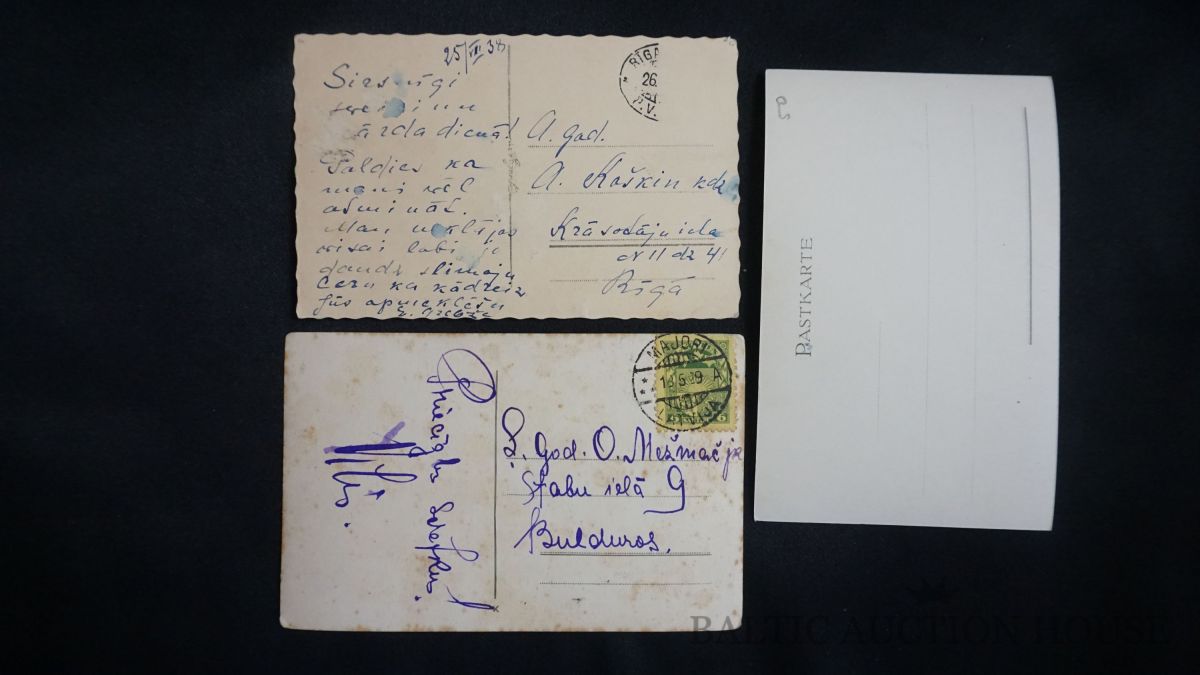 25/VII 38
Sirsnīgi
sveicinu
vārda dienā!
Paldies ka
mani vēl
atminat.
Man neklājas
visai labi jo
daudz slimoju
Ceru ka kādreiz
Jūs apmeklēšu
RĪGA
26.
P.V.
A. god.
A. Koškin kdz
Krāsotāju iela
N 11 dz 41
Rīgā
Priecīgus svētkus!
MAJORI
LATVIJA
A. God. O. Mežmač
Stabu ielā 9
Bulduros.
PASTKARTE
BALTIC AUCTION HOUSE